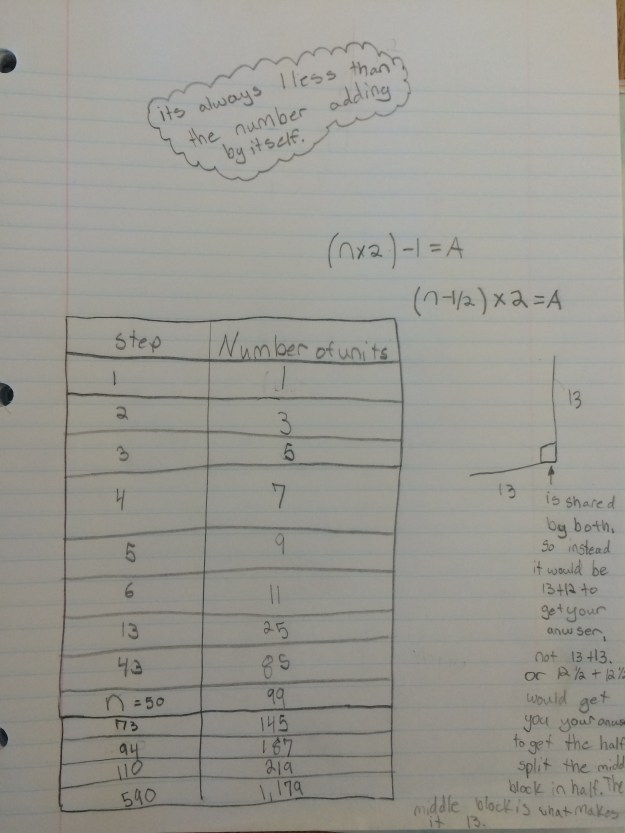 its always 1 less than
the number adding
by itself.
(n×2)-1=A
(n-1/2)×2=A
Step Number of units
1 1
2 3
3 5
4 7
5 9
6 11
13 25
43 85
n=50 99
73 145
94 187
110 219
590 1,179
13
13
is shared
by both.
So instead
it would be
13+12 to
get your
anwser,
not 13+13.
or 12 1/2 + 12 1/2
would get
you your
to get the half
split the
block in half. The
middle block is what makes
it 13.